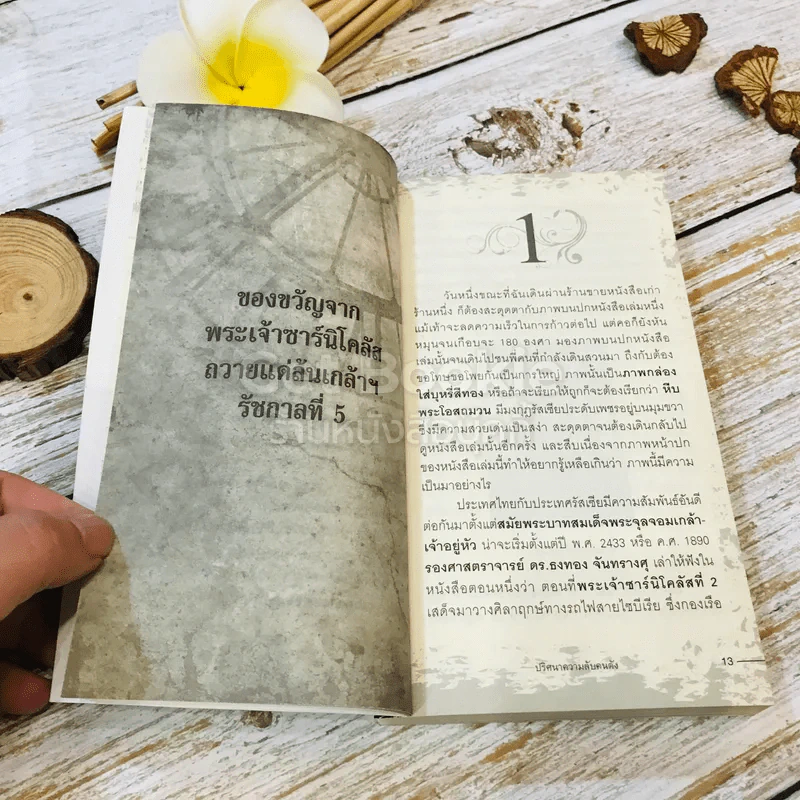 ของขวัญจาก
พระเจ้าซาร์นิโคลัส
ถวายแด่ล้นเกล้าฯ
รัชกาลที่ 5
1
วันหนึ่งขณะที่ฉันเดินผ่านร้านขายหนังสือเก่า
ร้านหนึ่ง ก็ต้องสะดุดตากับภาพบนปกหนังสือเล่มหนึ่ง
แม้เท้าจะลดความเร็วในการก้าวต่อไป แต่คอก็ยังหัน
หมุนจนเกือบจะ 180 องศา มองภาพบนปกหนังสือ
เล่มนั้นจนเดินไปชนพี่คนที่กำลังเดินสวนมา ถึงกับต้อง
ขอโทษขอโพยกันเป็นการใหญ่ ภาพนั้นเป็นภาพกล่อง
ใส่บุหรี่สีทอง หรือถ้าจะเรียกให้ถูกก็จะต้องเรียกว่า หีบ
พระโอสถมวน มีมงกุฎรัสเซียประดับเพชรอยู่บนมุมขวา
ซึ่งมีความสวยเด่นเป็นสง่า สะดุดตาจนต้องเดินกลับไป
ดูหนังสือเล่มนั้นอีกครั้ง และสืบเนื่องจากภาพหน้าปก
ของหนังสือเล่มนี้ทำให้อยากรู้เหลือเกินว่า ภาพนี้มีความ
เป็นมาอย่างไร
ประเทศไทยกับประเทศรัสเซียมีความสัมพันธ์อันดี
ต่อกันมาตั้งแต่สมัยพระบาทสมเด็จพระจุลจอมเกล้า-
เจ้าอยู่หัว น่าจะเริ่มตั้งแต่ปี พ.ศ. 2433 หรือ ค.ศ. 1890
รองศาสตราจารย์ ดร.ธงทอง จันทรางศุ เล่าให้ฟังใน
หนังสือตอนหนึ่งว่า ตอนที่พระเจ้าซาร์นิโคลัสที่ 2
เสด็จมาวางศิลาฤกษ์ทางรถไฟสายไซบีเรีย ซึ่งกองเรือ
ปริศนาความลับคนดัง
13